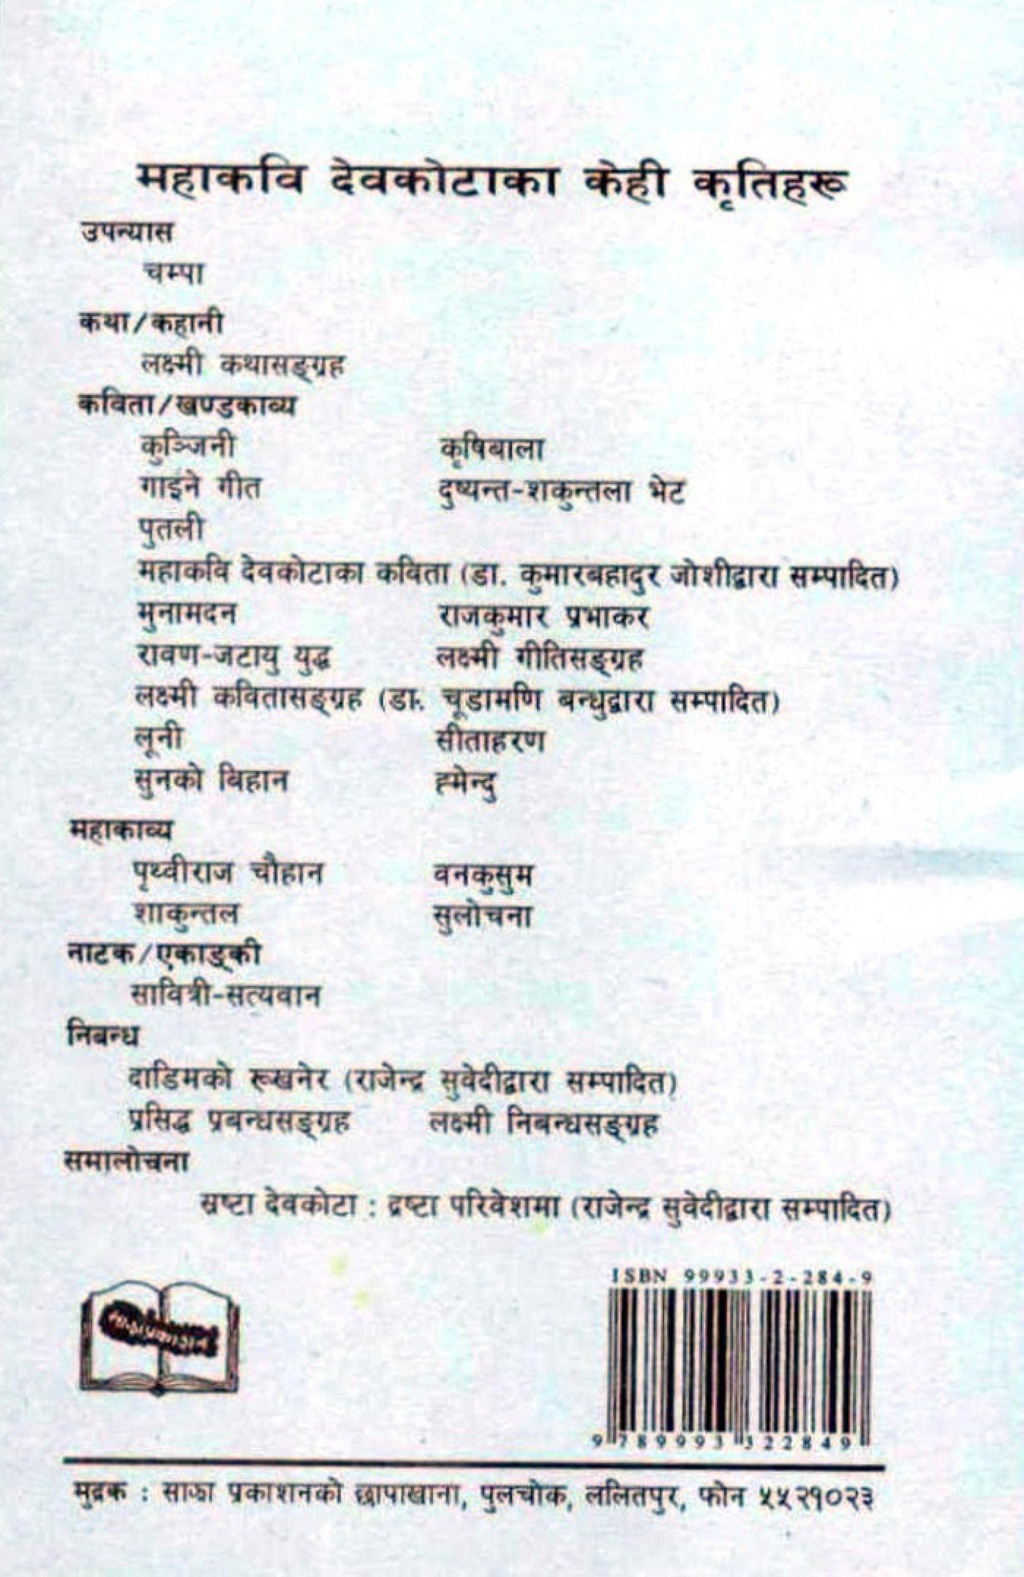 महाकवि देवकोटाका केही कृतिहरू
उपन्यास
चम्पा
कथा/कहानी
लक्ष्मी कथासङ्ग्रह
कविता/खण्डकाव्य
कुञ्जिनी कृषिबाला
गाइने गीत दुष्यन्त-शकुन्तला भेट
पुतली
महाकवि देवकोटाका कविता (डा. कुमारबहादुर जोशीद्वारा सम्पादित)
मुनामदन राजकुमार प्रभाकर
रावण-जटायु युद्ध लक्ष्मी गीतिसङ्ग्रह
लक्ष्मी कवितासङ्ग्रह (डा. चूडामणि बन्धुद्वारा सम्पादित)
लूनी सीताहरण
सुनको बिहान ह्मेन्दु
महाकाव्य
पृथ्वीराज चौहान वनकुसुम
शाकुन्तल सुलोचना
नाटक/एकाङ्की
सावित्री-सत्यवान
निबन्ध
दाडिमको रूखनेर (राजेन्द्र सुवेदीद्वारा सम्पादित)
प्रसिद्ध प्रबन्धसङ्ग्रह लक्ष्मी निबन्धसङ्ग्रह
समालोचना
स्रष्टा देवकोटा : द्रष्टा परिवेशमा (राजेन्द्र सुवेदीद्वारा सम्पादित)
ISBN 99933-2-284-9
साझा प्रकाशन
9 789993 322849
मुद्रक : साझा प्रकाशनको छापाखाना, पुलचोक, ललितपुर, फोन ५५२१०२३